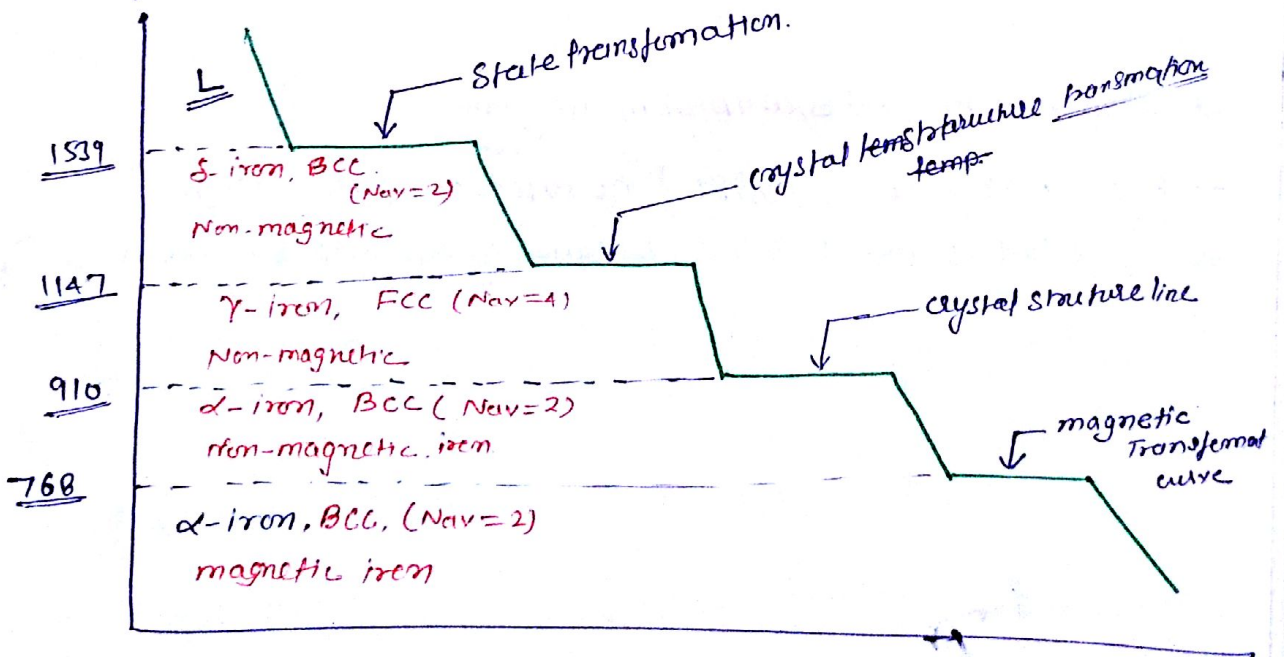 L
State transfomation.
1539
δ-iron, BCC.
(Nav=2)
Non-magnetic
crystal structure transmation
temp.
1147
γ-iron, FCC (Nav=4)
Non-magnetic
crystal struture line
910
α-iron, BCC (Nav=2)
Non-magnetic iron
magnetic
Transfomat
curve
768
α-iron, BCC, (Nav=2)
magnetic iron